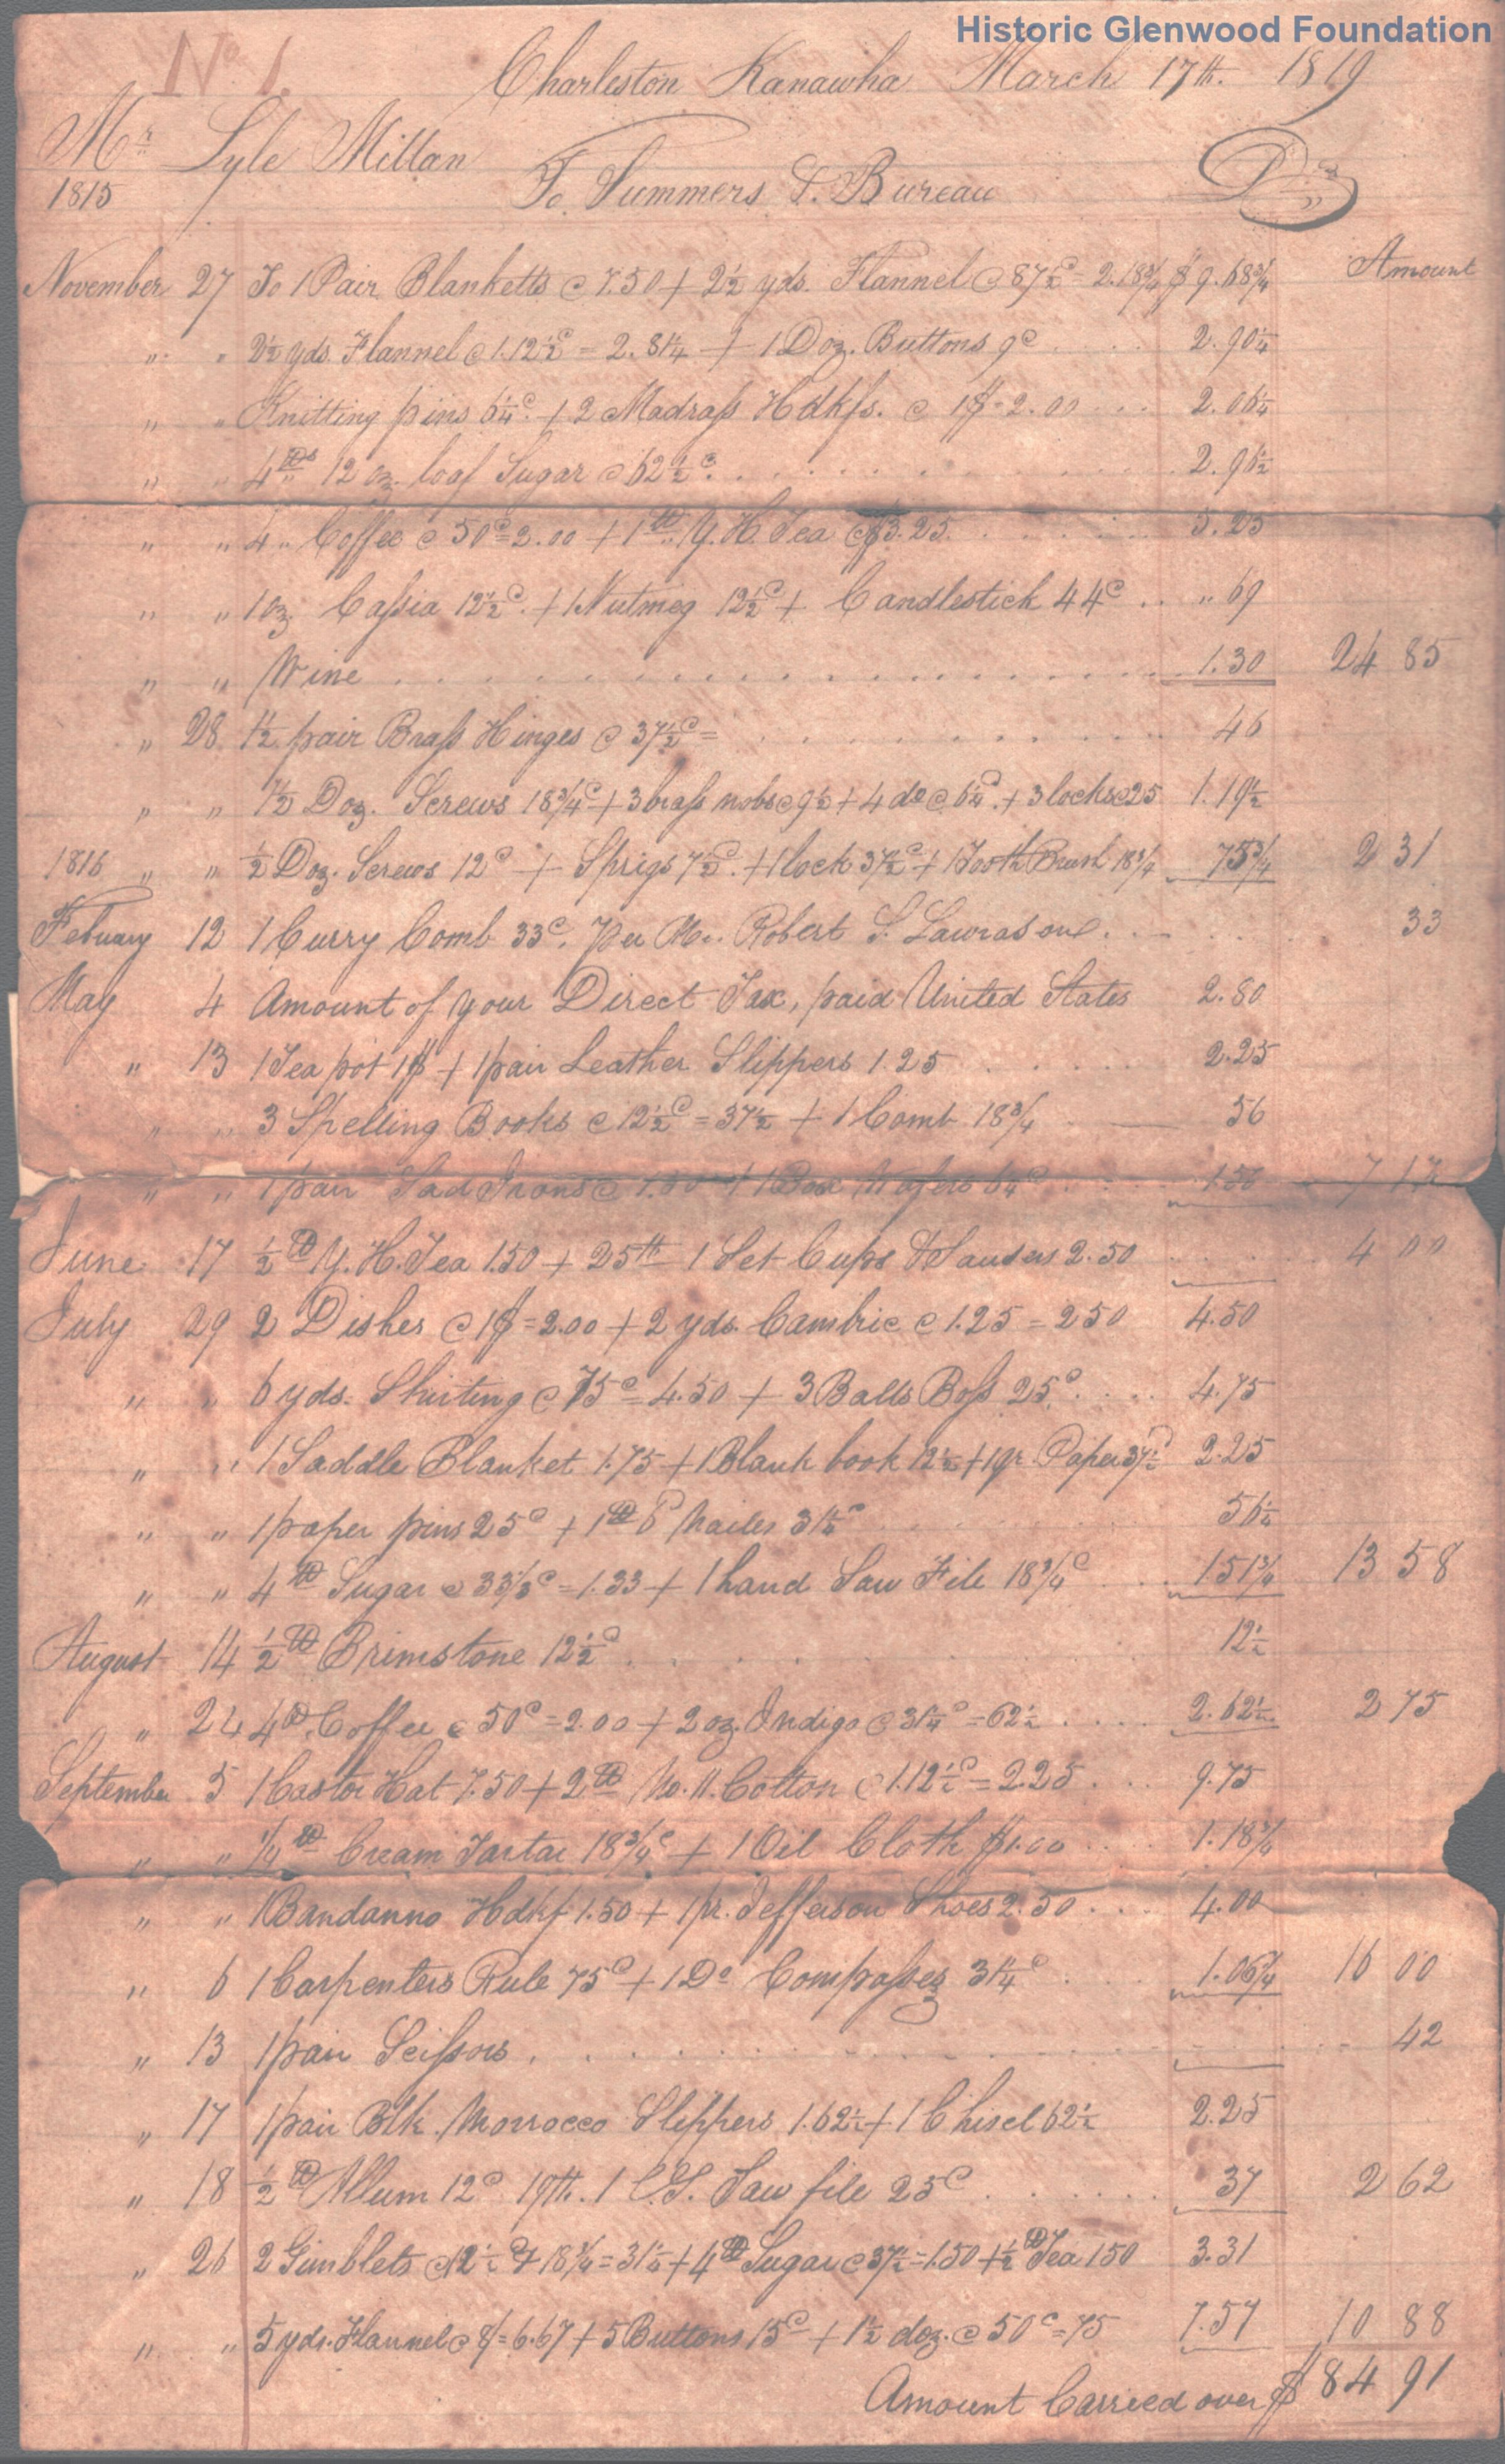 Historic Glenwood Foundation
No. 1.
Charleston Kanawha March 17th. 1819
Mr Lyle Millan
To Summers & Bureau Dr
1815
Amount
November 27 To 1 Pair Blanketts @ 7.50 + 2½ yds. Flannel @ 87½c = 2.18¾ $ 9.68¾
" " 2½ yds. Flannel @ 1.12½c = 2.81¼ + 1 Doz. Buttons 9c .... 2.90¼
" " Knitting pins 6¼c. + 2 Madrass Hdkfs. @ 1$ = 2.00 ... 2.06¼
" " 4lbs 12 oz. loaf Sugar @ 62½c. ........ 2.96½
" " 4 " Coffee @ 50c = 2.00 + 1lb. Y. H. Tea @ $3.25. ..... 5.25
" " 1 oz. Cassia 12½c. + 1 Nutmeg 12½c + Candlestick 44c .. " 69
" " Wine ........ 1.30 24 85
" 28 1½ pair Brass Hinges @ 37½c = ........ 46
" " 1½ Doz. Screws 18¾c + 3 brass nobs @ 9½ + 4 do @ 6¼c. + 3 locks @ 25 1.19½
1816 " " ½ Doz. Screws 12c + Sprigs 7½c. + 1 lock 37½c + 1 Tooth Brush 18¾ 75¾ 2 31
Febuary 12 1 Curry Comb 33c. Per Mr. Robert S. Lawrason . . 33
May 4 Amount of your Direct Tax, paid United States 2.80
" 13 1 Tea pot 1$ + 1 pair Leather Slippers 1.25 ..... 2.25
" " 3 Spelling Books @ 12½c = 37½ + 1 Comb 18¾ 56
" " 1 pair Sad Irons @ 1.50 + 1 Box Wafers 6¼c 1.56 7 17
June 17 ½lb Y. H. Tea 1.50 + 25th 1 Set Cups & Sausers 2.50 4 00
July 29 2 Dishes @ 1$ = 2.00 + 2 yds. Cambric @ 1.25 = 2 50 4.50
" " 6 yds. Shirting @ 75c = 4.50 + 3 Balls Boss 25c. .... 4.75
" " 1 Saddle Blanket 1.75 + 1 Blank book 12½ + 1 qr. Paper 37½c 2.25
" " 1 paper pins 25c + 1lb 6 Nailes 31¼c 56¼
" " 4lb Sugar @ 33⅓c = 1.33 + 1 hand Saw File 18¾c 1 51¾ 13 58
August 14 ½lb Brimstone 12½c 12½
" 24 4lb. Coffee @ 50c = 2.00 + 2 oz. Indigo @ 31¼c = 62½ .... 2.62½ 2 75
September 5 1 Castor Hat 7.50 + 2lb No. 11. Cotton @ 1.12½c = 2.25 ... 9.75
" " ¼lb Cream Tartar 18¾c + 1 Oil Cloth $1.00 .... 1.18¾
" " 1 Bandanno Hdkf 1.50 + 1 pr. Jefferson Shoes 2.50 ... 4.00
" 6 1 Carpenters Rule 75c + 1 Do Compasses 31¼c 1.06¼ 16 00
" 13 1 pair Scissors. ........ 42
" 17 1 pair Blk. Morrocco Slippers 1.62½ + 1 Chisel 62½ 2.25
" 18 ½lb Allum 12c 19th. 1 C.S. Saw file 25c ...... 37 2 62
" 26 2 Gimblets @ 12½c & 18¾ = 31¼ + 4lb Sugar @ 37½ = 1.50 + ½lb Tea 1 50 3.31
" " 5 yds. Flannel @ 8/ = 6.67 + 5 Buttons 15c + 1½ doz. @ 50c = 75 7.57 10 88
Amount Carried over $ 84 91